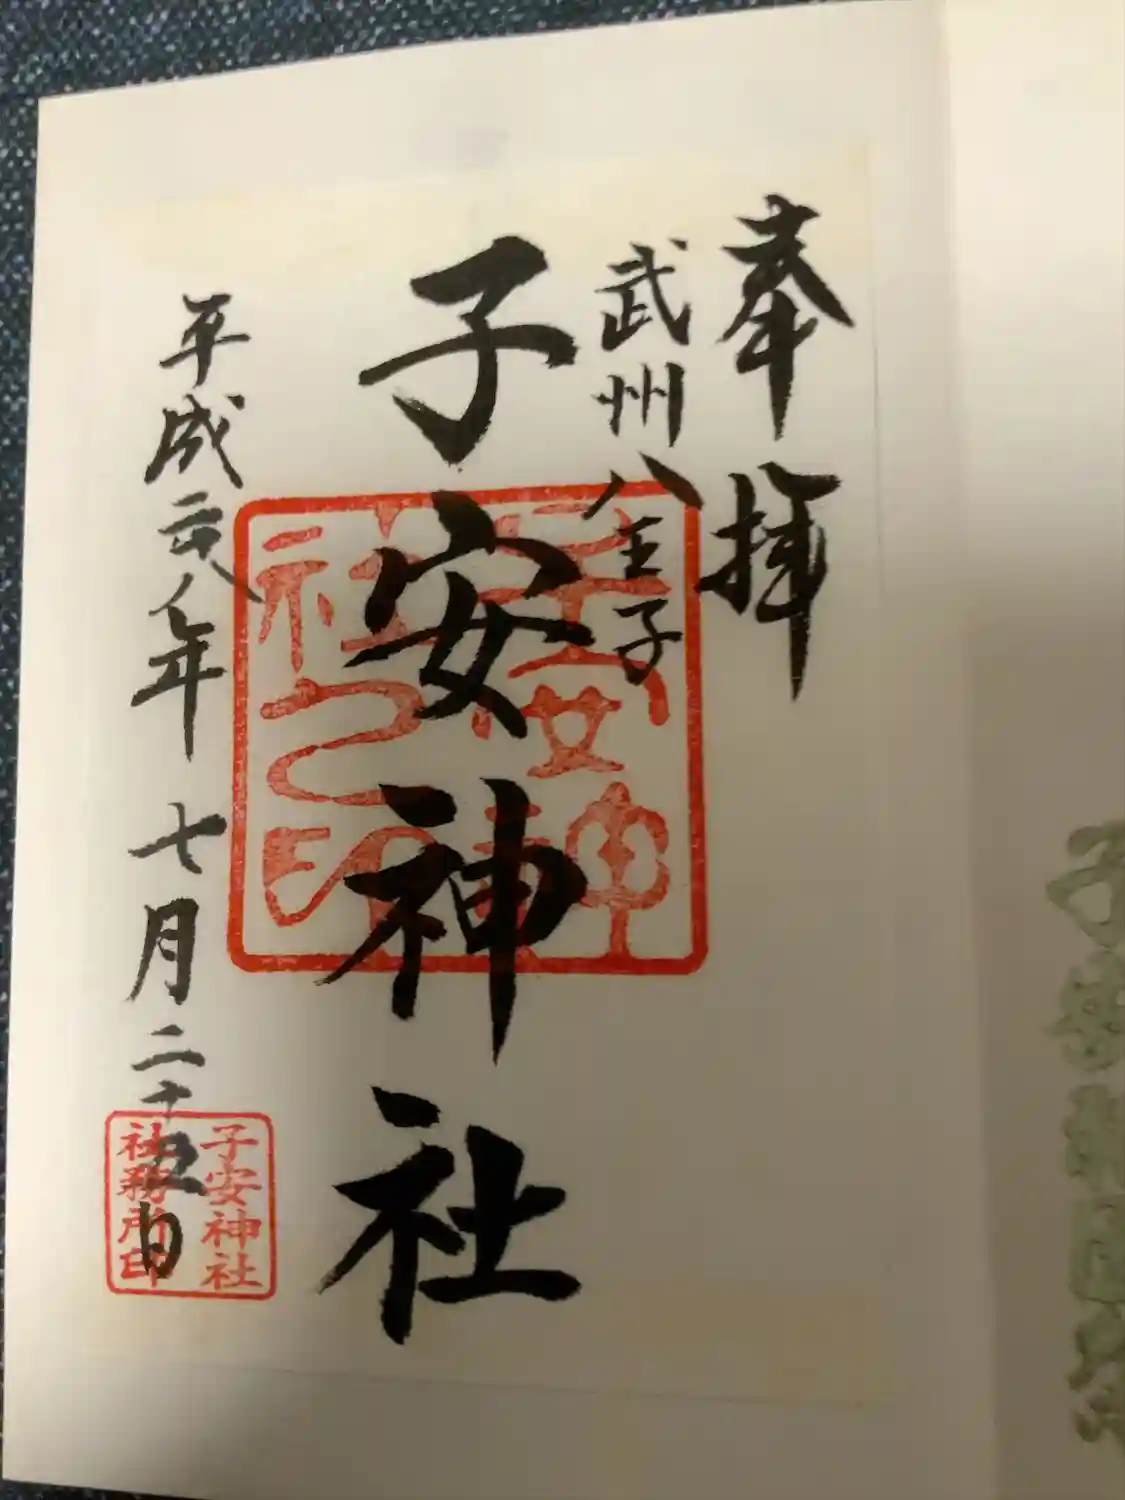 奉拝
武州八王子
子安神社
平成二十八年七月二十五日
子安神社
社務所印